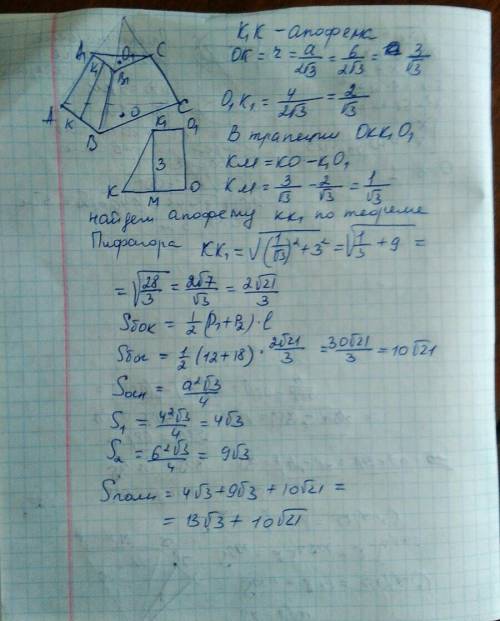 K₁K - апофема
OK = r = a/(2√3) = 6/(2√3) = 3/√3
O₁K₁ = 4/(2√3) = 2/√3
В трапеции OKK₁O₁
KM = KO - K₁O₁
KM = 3/√3 - 2/√3 = 1/√3
A₁ K₁ B₁ O₁ C
A K B O C
K₁ O₁
3
K M O
найдем апофему KK₁ по теореме
Пифагора KK₁ = √((1/√3)² + 3²) = √(1/3 + 9) =
= √(28/3) = 2√7/√3 = 2√21/3
Sбок = 1/2 (P₁+P₂) · l
Sбок = 1/2 (12+18) · 2√21/3 = 30√21/3 = 10√21
Sосн = a²√3/4
S₁ = 4²√3/4 = 4√3
S₂ = 6²√3/4 = 9√3
Sполн = 4√3 + 9√3 + 10√21 =
= 13√3 + 10√21